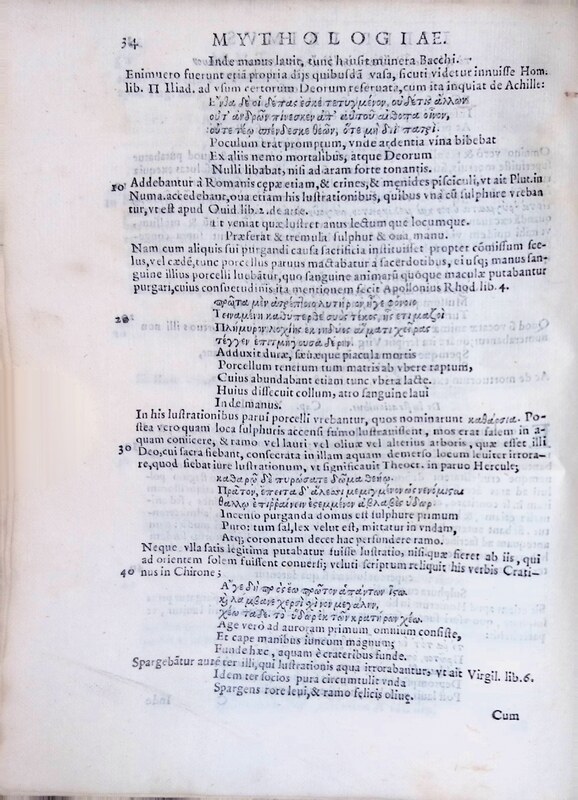 34 MYTHOLOGIAE.
Inde manus lauit, tunc hausit munera Bacchi.
Enimuero fuerunt etiā propria dijs quibusdā vasa, sicuti videtur innuisse Hom.
lib. Π Iliad. ad vsum certorum Deorum reseruata, cum ita inquiat de Achille:
Ἔνθα δέ οἱ δέπας ἔσκε τετυγμένον, οὐδέ τις ἄλλων
οὔτ' ἀνδρῶν πίνεσκεν ἀπ' αὐτοῦ αἴθοπα οἶνον,
οὔτε τέῳ σπένδεσκε θεῶν, ὅτε μὴ διὶ πατρί.
Poculum erat promptum, vnde ardentia vina bibebat
Ex aliis nemo mortalibus, atque Deorum
Nulli libabat, nisi ad aram forte tonantis.
10 Addebantur à Romanis cepæ etiam, & crines, & menides pisciculi, vt ait Plut. in
Numa. accedebant, oua etiam his lustrationibus, quibus vnà cū sulphure vreban
tur, vt est apud Ouid. lib. 2. de arte.
Et veniat quæ lustret anus lectumque locumque.
Præferat & tremula sulphur & oua manu.
Nam cum aliquis sui purgandi causa sacrificia instituisset propter cōmissum sce-
lus, vel cædē, tunc porcellus paruus mactabatur à sacerdotibus, eiusq; manus san-
guine illius porcelli luebātur, quo sanguine animarū quoque maculæ putabantur
purgari, cuius consuetudinis ita mentionem fecit Apollonius Rhod. lib. 4.
πρῶτα μὲν λυτήριον ἥγε φόνοιο
20 Τειναμένη καθύπερθε συὸς τέκος, ἧς ἔτι μαζοὶ
Πλήμυρον λοχίης ἐκ νηδύος, αἵματι χεῖρας
τέγγεν ἐπιτμήγουσα δέρην.
Adduxit duræ, sæuæque piacula mortis
Porcellum tenerum tum matris ab vbere raptum,
Cuius abundabant etiam tunc vbera lacte.
Huius dissecuit collum, atro sanguine laui
Inde manus.
In his lustrationibus parui porcelli vrebantur, quos nominarunt καθάρσια. Po-
stea vero quam loca sulphuris accensi fumo lustrauissent, mos erat salem in a-
quam conijcere, & ramo vel lauri vel oliuæ vel alterius arboris, quæ esset illi
30 Deo, cui sacra fiebant, consecrata in illam aquam demerso locum leuiter irrora-
re, quod fiebat iure lustrationum, vt significauit Theocr. in paruo Hercule;
καθαρῷ δὲ πυρώσατε δῶμα θεείῳ.
Πρᾶτον, ἔπειτα δ' ἅλεσσι μεμιγμένον ὡς νενόμισται
θαλλῷ ἐπιῤῥαίνειν ἐστεμμένον ἀβλαβὲς ὕδωρ.
Incensio purganda domus est sulphure primum
Puro: tum sal, lex velut est, mittatur in vndam,
Atq; coronatum decet hac perfundere ramo.
Neque vlla satis legitima putabatur fuisse lustratio, nisi quæ fieret ab iis, qui
ad orientem solem fuissent conuersi; veluti scriptum reliquit his verbis Crati-
40 nus in Chirone;
Ἄγε δὴ πρὸς ἕω πρῶτον ἁπάντων ἵστω
καὶ λάμβανε χερσὶ σχῖνον μεγάλην,
χέω τάδε. τὸ ὕδωρ ἐκ τῶν κρατήρων χέω.
Age vero ad auroram primum omnium consiste,
Et cape manibus iuncum magnum;
Funde hæc, aquam è crateribus funde.
Spargebātur autē ter illi, qui lustrationis aqua irrorabantur, vt ait Virgil. lib. 6.
Idem ter socios pura circumtulit vnda
Spargens rore leui, & ramo felicis oliuę.
Cum